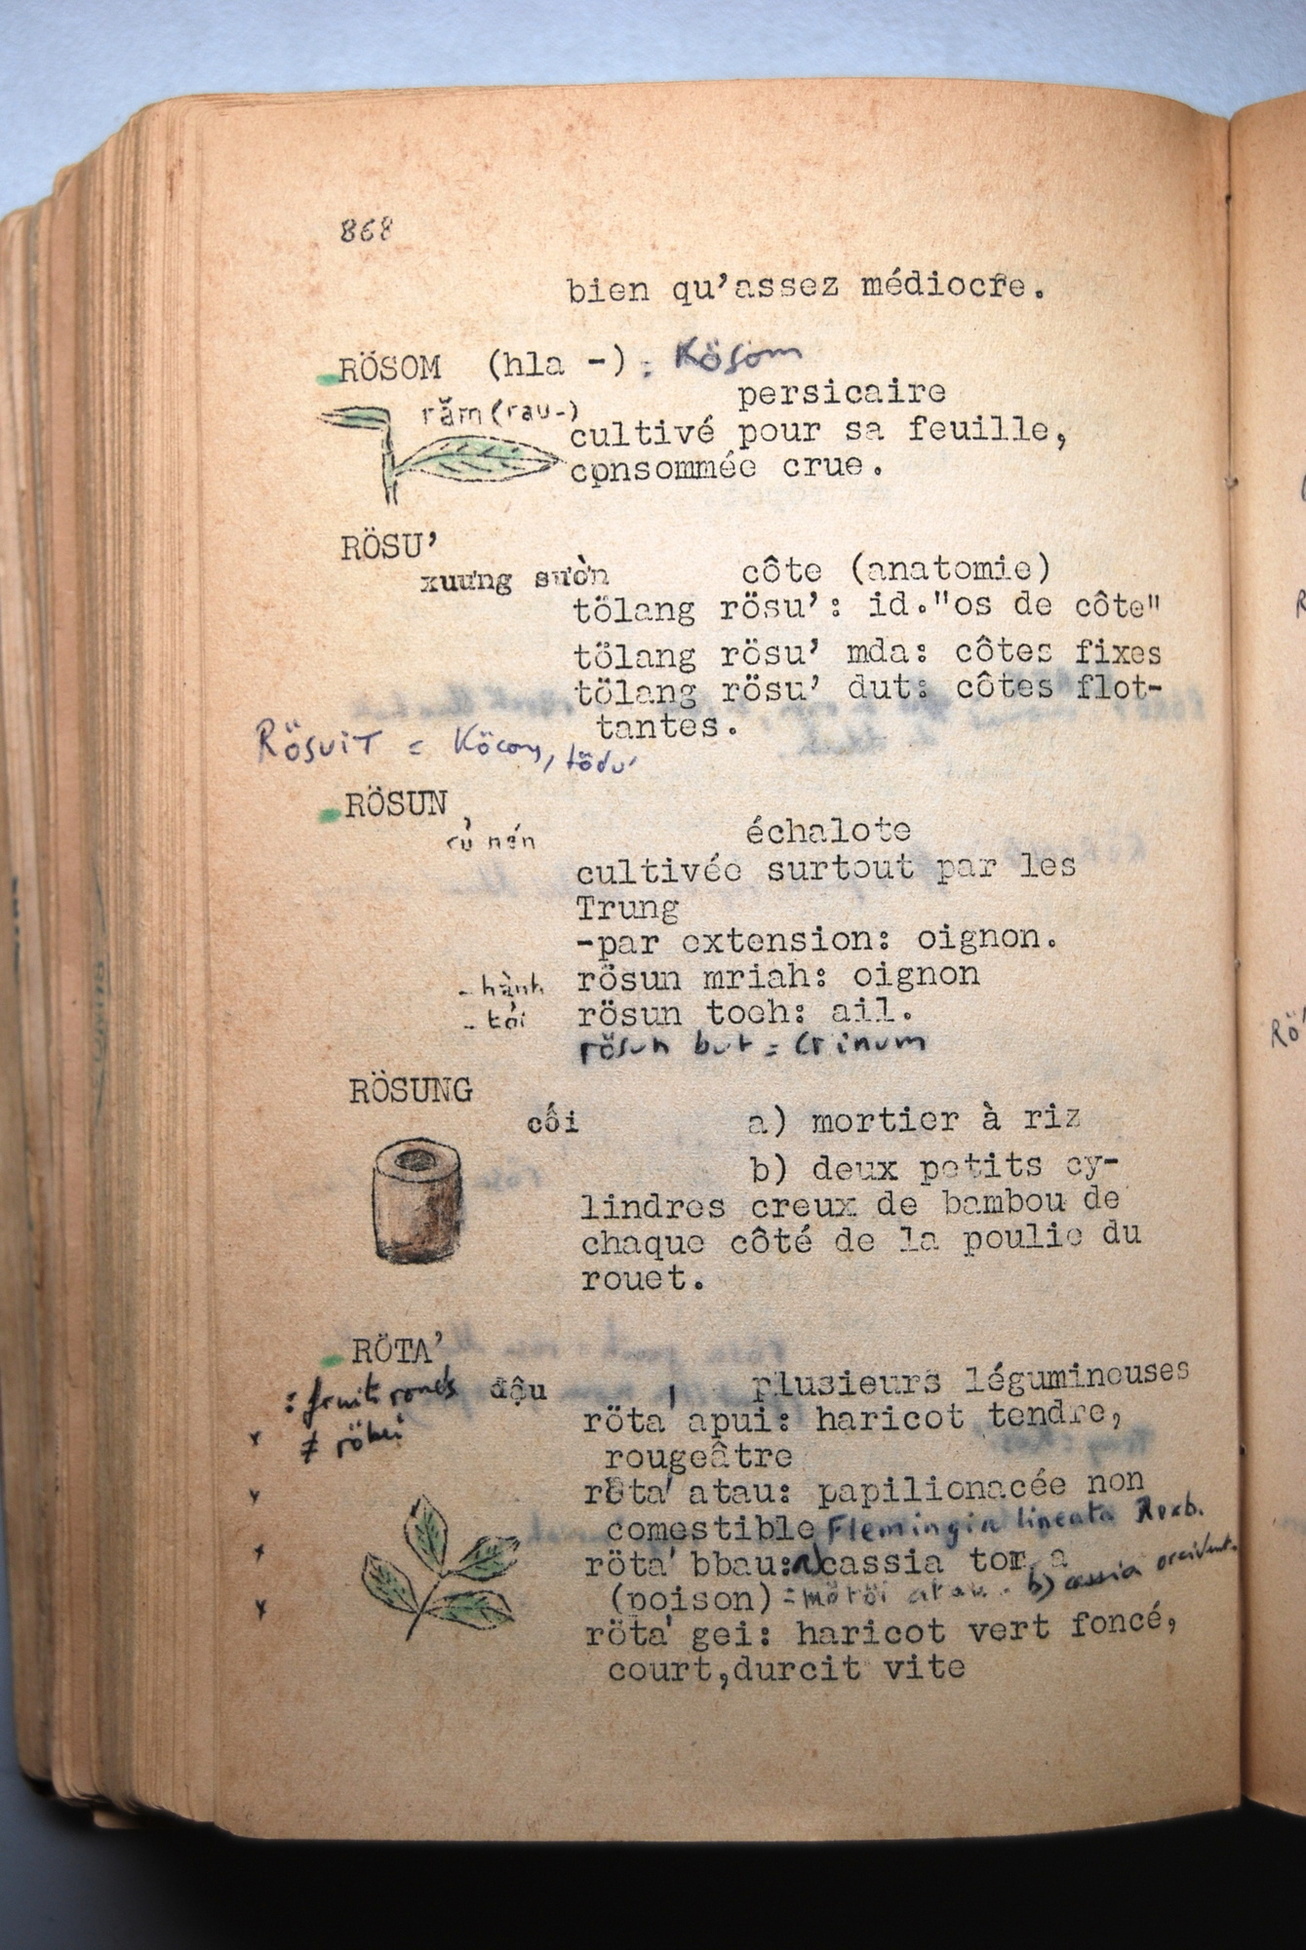 868
bien qu'assez médiocre.
RÖSOM (hla -) : Kösom
persicaire
răm (rau-)
cultivé pour sa feuille,
consommée crue.
RÖSU'
xương sườn côte (anatomie)
tölang rösu': id."os de côte"
tölang rösu' mda: côtes fixes
tölang rösu' dut: côtes flot-
tantes.
RÖSUIT = Köcong, tödu'
RÖSUN
củ nén échalote
cultivée surtout par les
Trung
-par extension: oignon.
- hành rösun mriah: oignon
- tỏi rösun toeh: ail.
rösun but = Crinum
RÖSUNG
cối a) mortier à riz
b) deux petits cy-
lindres creux de bambou de
chaque côté de la poulie du
rouet.
RÖTA'
: fruits ronds đậu plusieurs légumineuses
≠ röbei röta' apui: haricot tendre,
rougeâtre
röta' atau: papilionacée non
comestible Flemingia lineata Roxb.
röta' bbau: a) cassia tora
(poison) = mötöi atau. b) cassia occident.
röta' gei: haricot vert foncé,
court,durcit vite